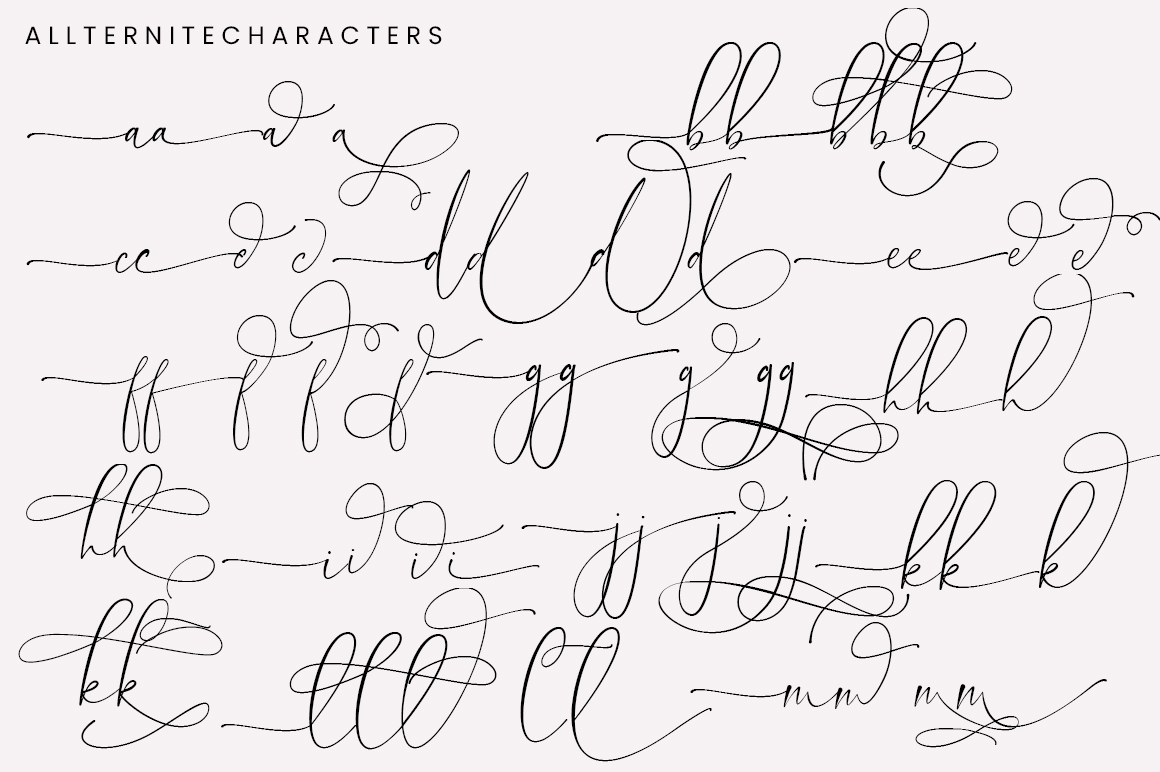 ALLTERNITECHARACTERS
aa a a bb bbb
cc c c dd d d d ee e e
ff f f f gg g gg hh h
hh ii i i jj j jj kk k
kk lll ll mm mm